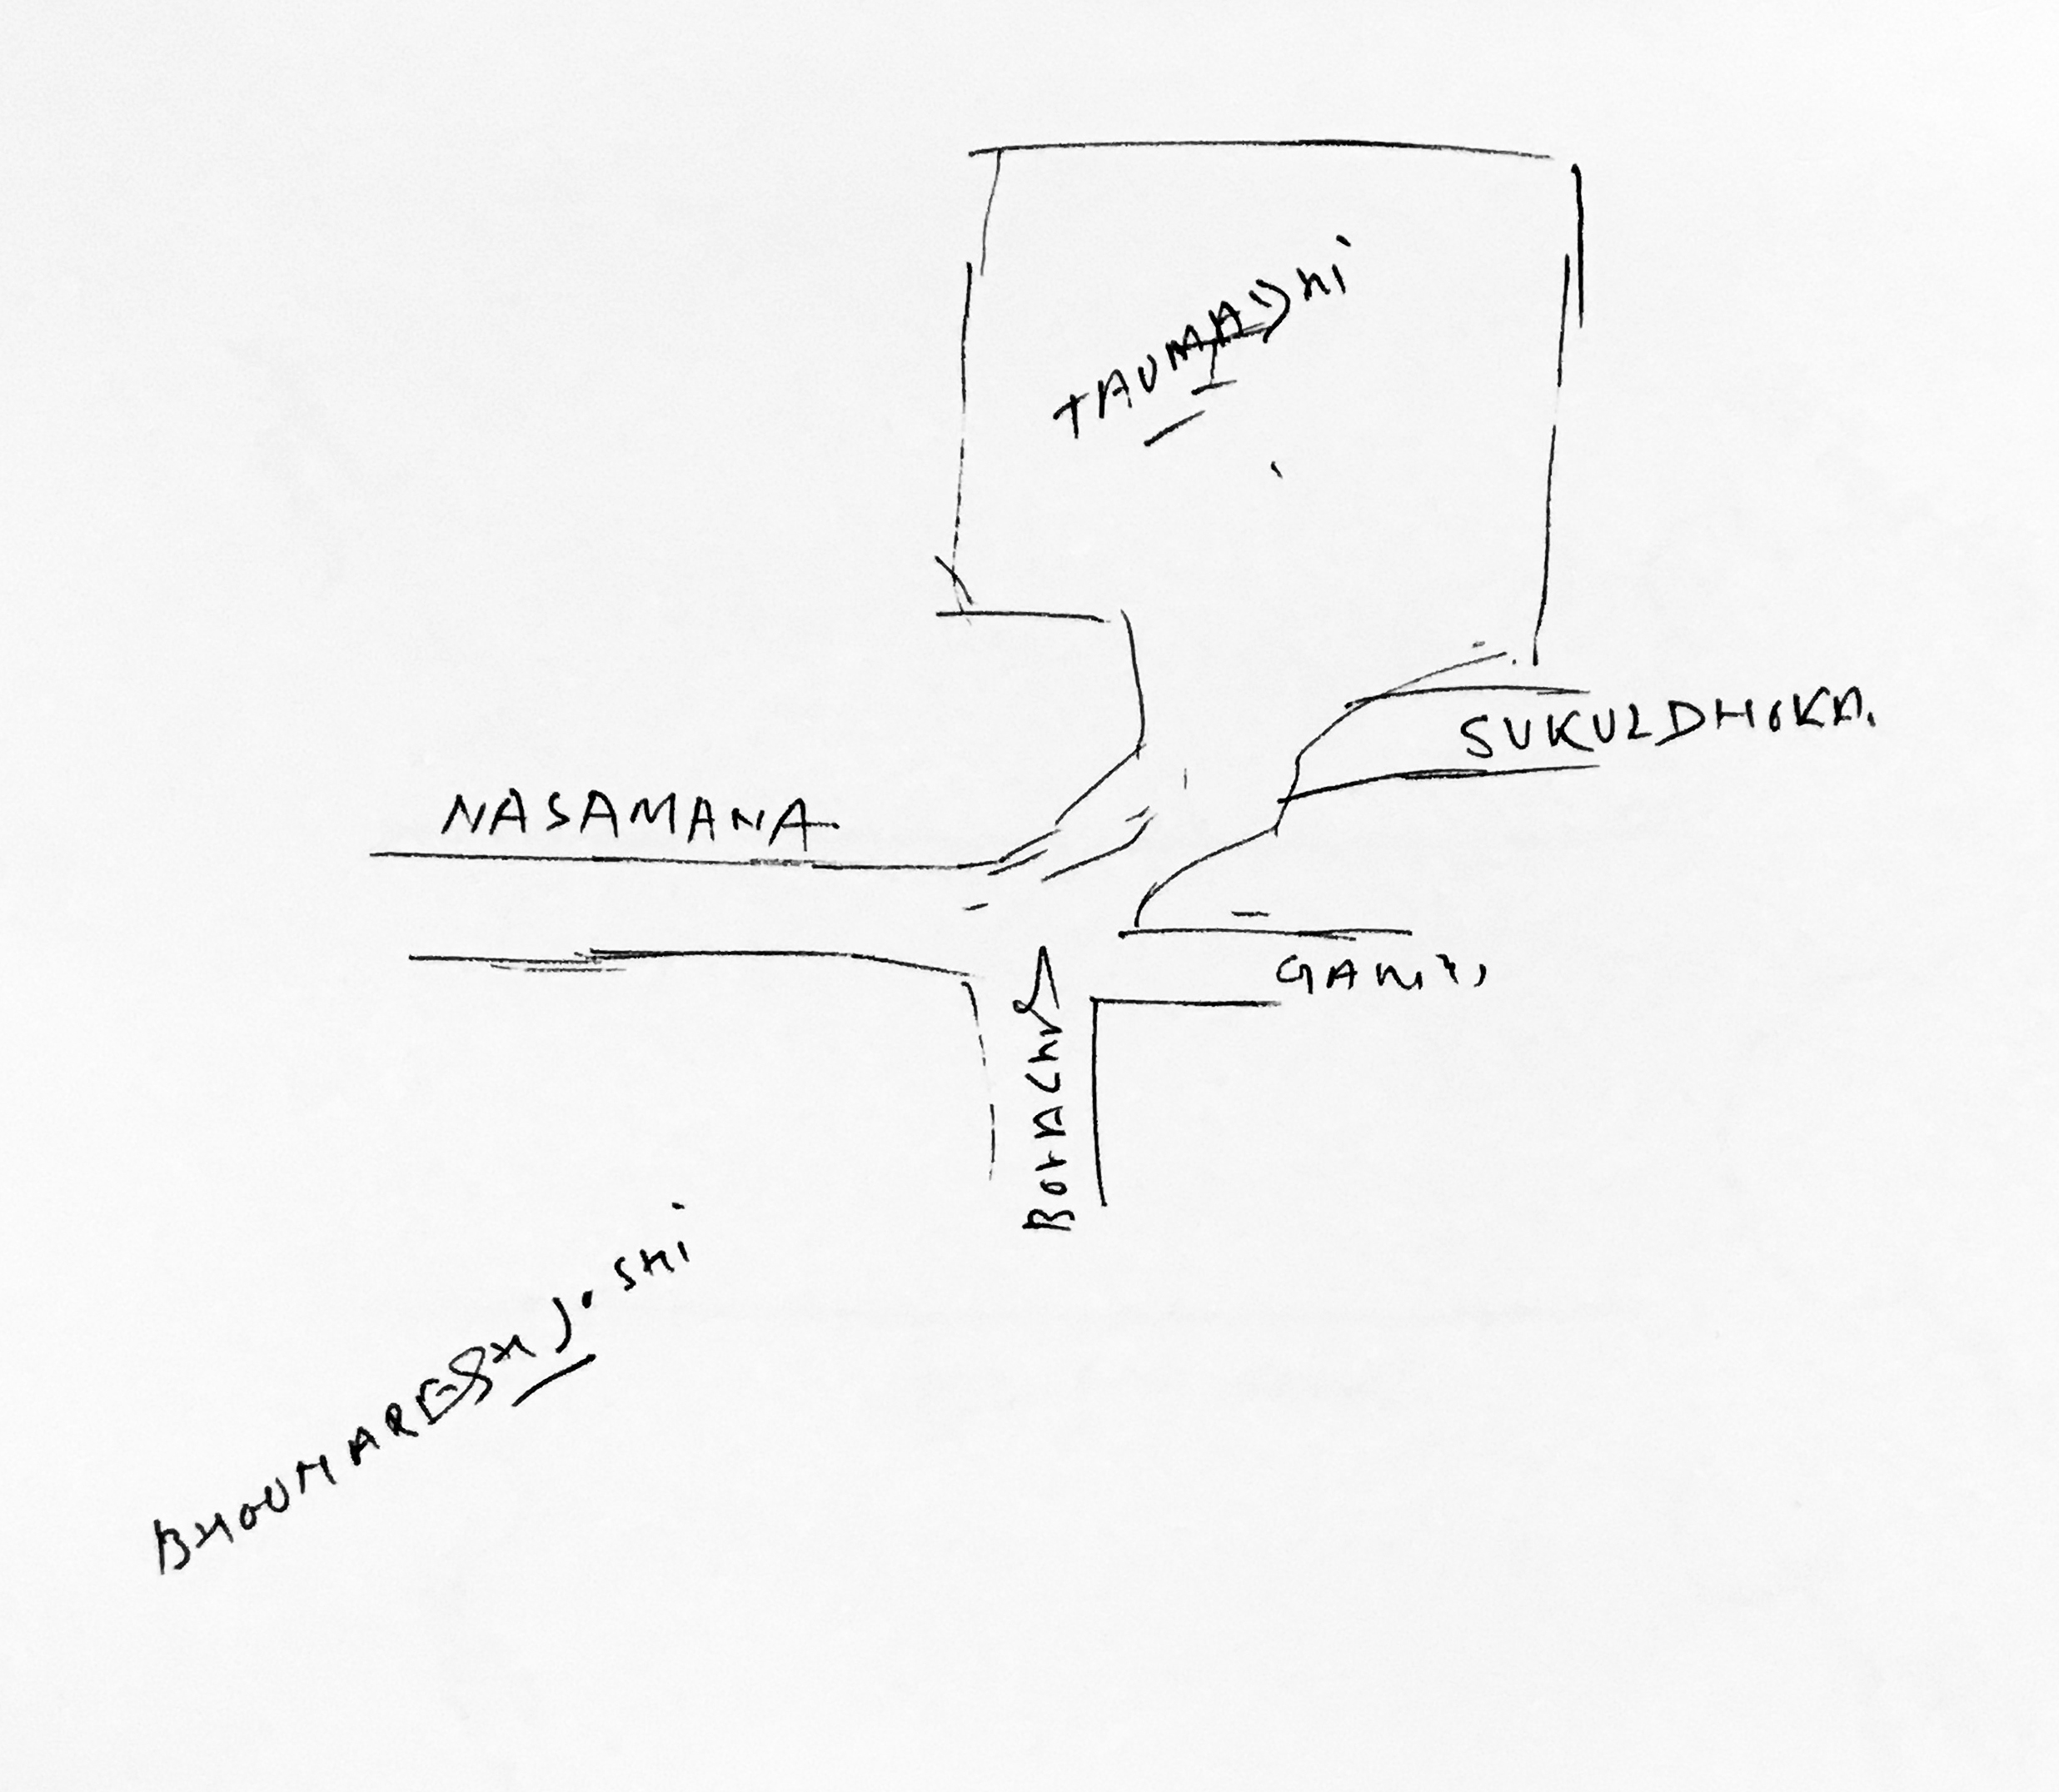 TAUMADhi
SUKULDHOKA.
NASAMANA
GAHITI
BOLACHHE
BHOUMARESH JOSHI